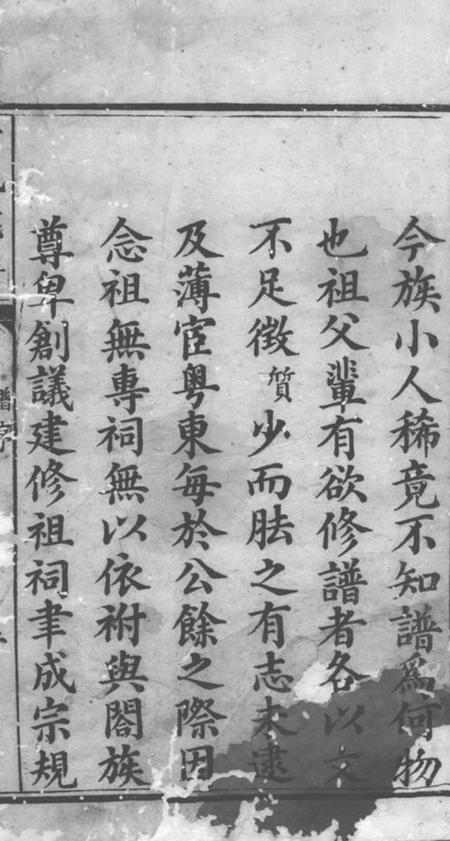 今族小人稀竟不知譜爲何物
也祖父輩有欲修譜者各以文
不足徵質少而胠之有志未逮
及薄宦粤東每於公餘之際因
念祖無專祠無以依祔與闔族
尊卑創議建修祖祠聿成宗規
譜序